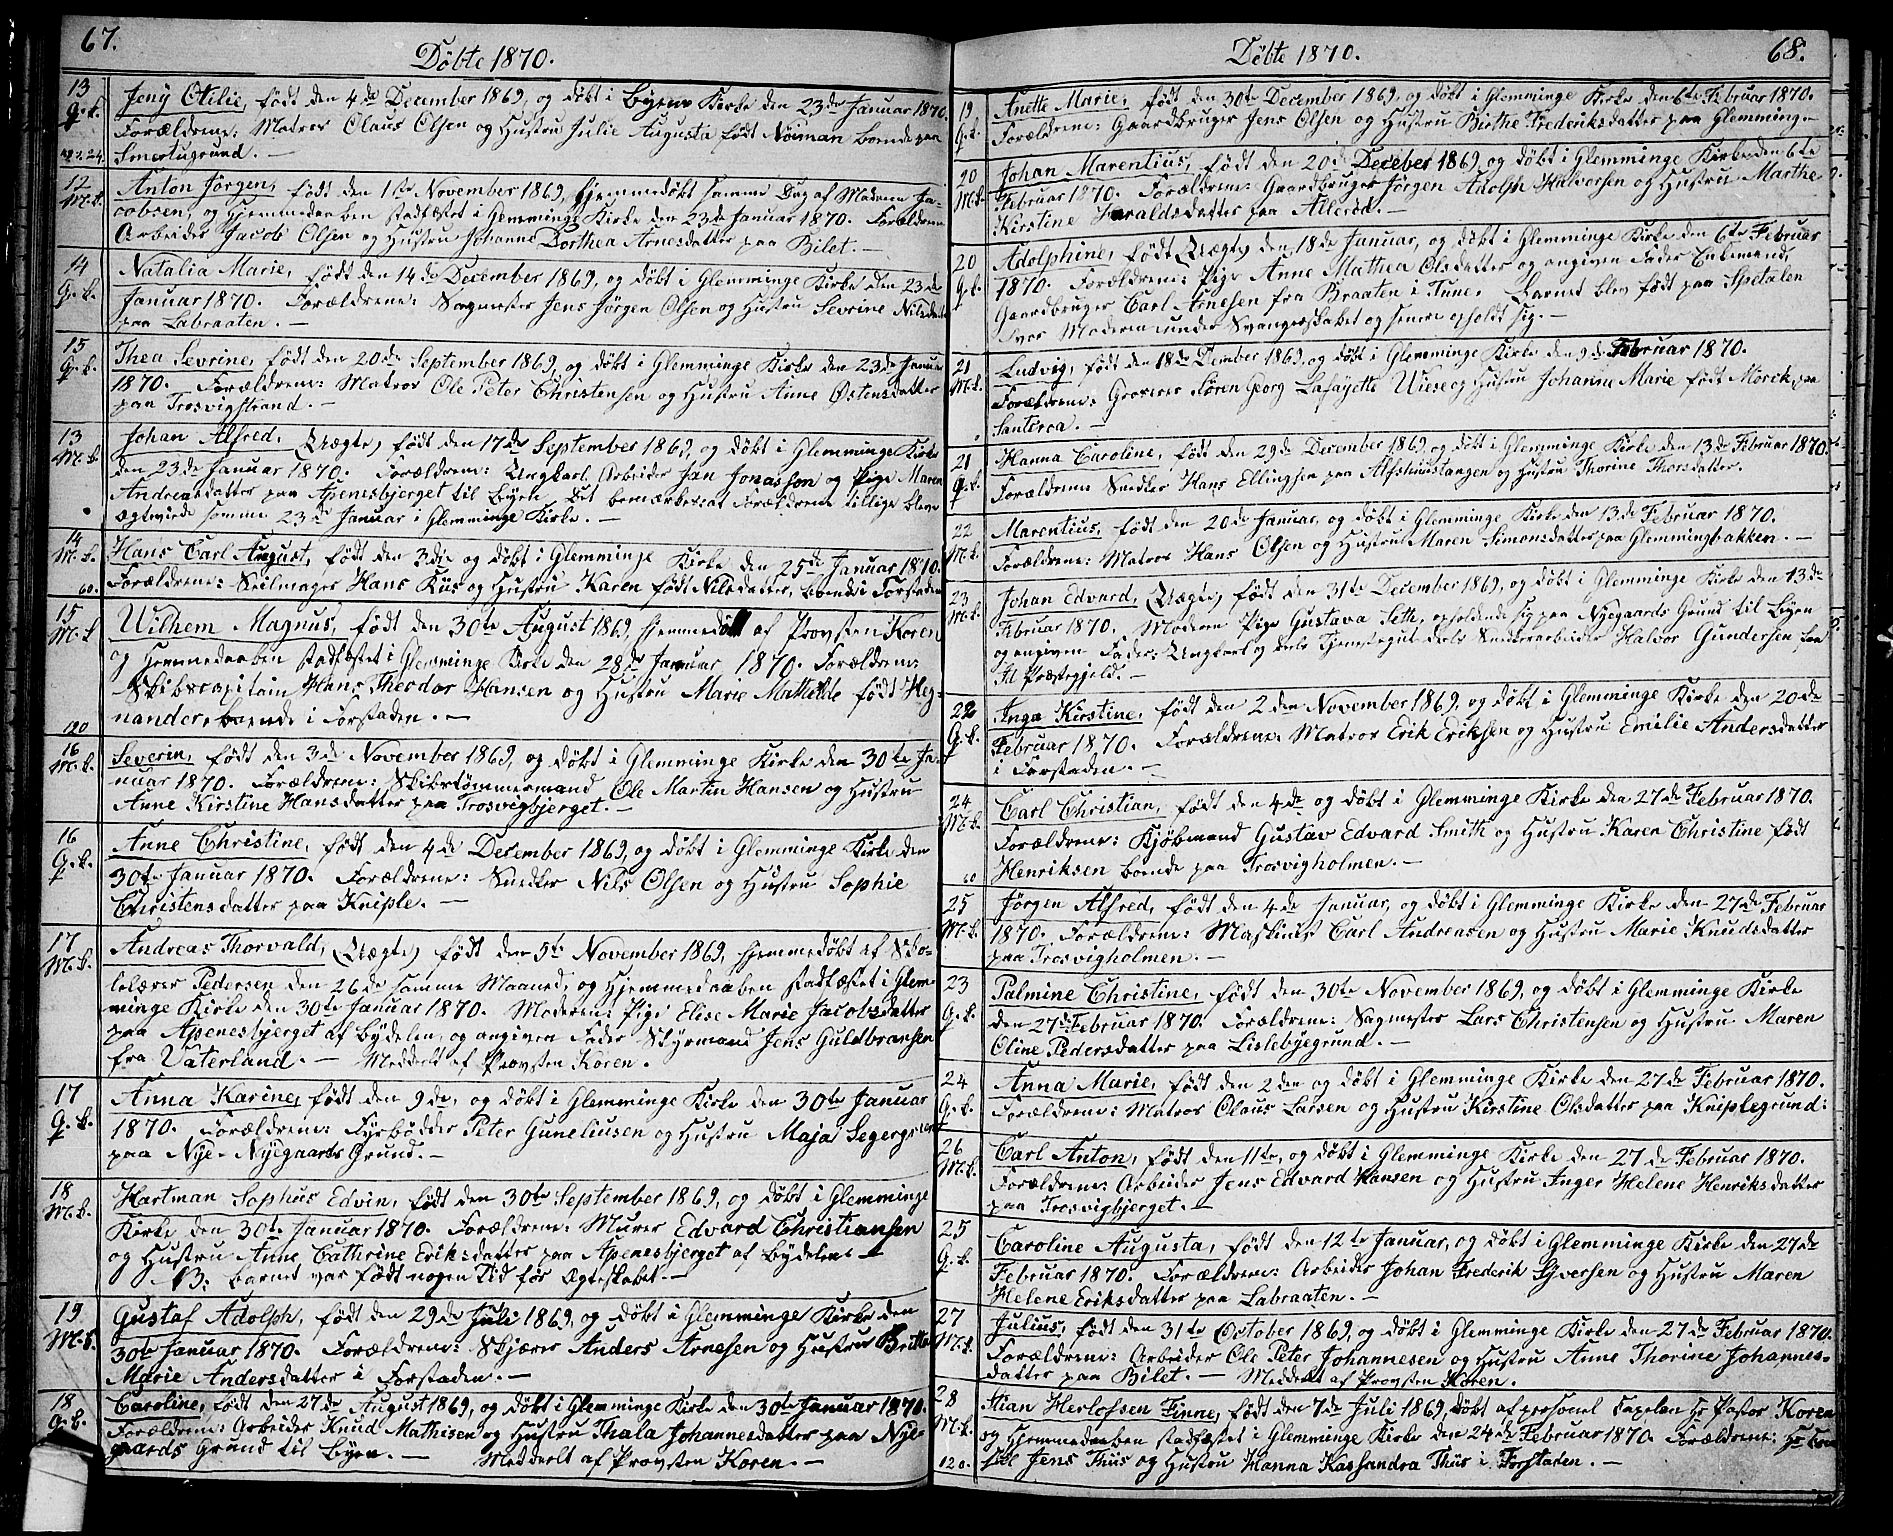 67.
Döbte 1870.
13 Jeny Otilie, født den 4de December 1869, og døbt i Byens Kirke den 23de Januar 1870.
Q.k. Forældrene: Matros Claus Olsen og Hustru Julie Augusta født Nöiman boende paa
Smertugrund. —
12 Anton Jörgen, født den 1ste November 1869, hjemmedøbt samme Dag af Madam Ja-
M.k. cobsen, og Hjemmedaaben stadfæstet i Glemminge Kirke den 23de Januar 1870. Forældrene
Arbeider Jacob Olsen og Hustru Johanne Dorthea Arnesdatter paa Bilet. —
14 Natalia Marie, født den 14de December 1869, og døbt i Glemminge Kirke den 23de
Q.k. Januar 1870. Forældrene: Sagmester Jens Jörgen Olsen og Hustru Severine Nilsdatter
paa Labraaten. —
15 Thea Sevrine, født den 20de September 1869, og døbt i Glemminge Kirke den 23de Januar
Q.k. 1870. Forældrene: Matros Ole Peter Christensen og Hustru Anne Østensdatter
paa Trosvigstrand. —
13 Johan Alfred, (Uægte) født den 17de September 1869, og døbt i Glemminge Kirke
M.k. den 23de Januar 1870. Forældrene: Ungkarl, Arbeider Jan Jonasson og Pige Maren
Andreasdatter paa Apenesbjerget til Byen. Det bemærkes at Forældrene tillige bleve
ægteviede samme 23de Januar i Glemminge Kirke. —
14 Hans Carl August, født den 3die og døbt i Glemminge Kirke den 25de Januar 1870.
M.k. 60. Forældrene: Seilmager Hans Riis og Hustru Karen født Nilsdatter, boende i Forstaden
15 Wilhem Magnus, født den 30te August 1869, hjemmedøbt af Provsten Koren
M.k. og Hjemmedaaben stadfæstet i Glemminge Kirke den 28de Januar 1870. Forældrene:
Skibscapitain Hans Theodor Hansen og Hustru Marie Mathilde født Heg-
120 nander, boende i Forstaden. —
16 Severin, født den 3de November 1869, og døbt i Glemminge Kirke den 30te Ja-
M.k. nuar 1870. Forældrene: Skibstømmermand Ole Martin Hansen og Hustru
Anne Kirstine Hansdatter paa Trosvigbjerget. —
16 Anne Christine, født den 4de December 1869, og døbt i Glemminge Kirke den
Q.k. 30te Januar 1870. Forældrene: Snedker Nils Olsen og Hustru Sophie
Christensdatter paa Kniple. —
17 Andreas Thorvald, (Uægte) født den 5te November 1869, hjemmedøbt af Sko-
M.k. lelærer Pedersen den 26de samme Maaned, og Hjemmedaaben stadfæstet i Glem-
minge Kirke den 30te Januar 1870. Moderen: Pige Elise Marie Jacobsdatter
paa Apenesbjerget af Bydelen, og angiven Fader Styrmand Jens Guldbransen
fra Vaterland. — Meddelt af Provsten Koren.
17 Anna Karine, født den 9de, og døbt i Glemminge Kirke den 30te Januar
Q.k. 1870. Forældrene: Fyrbødder Peter Guneliusen og Hustru Maja
paa Nye-Nyegaards Grund. —
18 Hartman Sophus Edvin, født den 30te September 1869, og døbt i Glemminge
M.k. Kirke den 30te Januar 1870. Forældrene: Murer Edvard Christiansen
og Hustru Anne Cathrine Eriksdatter paa Apenesbjerget af Bydelen. —
NB: barnet var født nogen Tid før Ægteskabet. —
19 Gustaf Adolph, født den 29de Juli 1869, og døbt i Glemminge Kirke den
M.k. 30te Januar 1870. Forældrene: Skjærer Anders Arnesen og Hustru Britta
Marie Andersdatter i Forstaden. —
18 Caroline, født den 27de August 1869, og døbt i Glemminge Kirke den 30te Januar 1870.
Q.k. Forældrene: Arbeider Knud Mathisen og Hustru Thala Johannesdatter paa Nye-
gaards Grund til Byen. — Meddelt af Provsten Koren. —
68.
Döbte 1870.
19 Anette Marie, født den 30te December 1869, og døbt i Glemminge Kirke den 6te Februar 1870.
Q.k. Forældrene: Gaardbruger Jens Olsen og Hustru Birthe Frederiksdatter paa Glemminge
20 Johan Marentius, født den 20de Deceber 1869, og døbt i Glemminge Kirke den 6te
M.k. Februar 1870. Forældrene: Gaardbruger Jörgen Adolph Halvorsen og Hustru Marthe
Kirstine Haraldsdatter paa Alleröd. —
20 Adolphine, født (Uægte) den 18de Januar, og døbt i Glemminge Kirke den 6te Februar
Q.k. 1870. Forældrene: Pige Anne Mathea Olsdatter og angiven Fader Enkemand,
Gaardbruger Carl Arnesen fra Braaten i Tune. Barnet blev født paa Spetalen
hvor Moderen under Svangerskabet og senere opholdt sig. —
21 Ludvig, født den 18de Dember 1869, og døbt i Glemminge Kirke den 9de Februar 1870.
M.k. Forældrene: Graverer Sören Georg Lafayette Wiese og Hustru Johanne Marie født Mörck paa
Santerra. —
21 Hanna Caroline, født den 29de December 1869, og døbt i Glemminge Kirke den 13de Februar 1870.
Q.k. Forældrene Snedker Hans Ellingsen paa og Hustru Thorine Thorsdatter.
22 Marentius, født den 20de Januar, og døbt i Glemminge Kirke den 13de Februar 1870.
M.k. Forældrene: Matros Hans Olsen og Hustru Maren Simonsdatter paa Glemmingbakken. —
23 Johan Edvard, (Uægte) født den 31te December 1869, og døbt i Glemminge Kirke den 13de
M.k. Februar 1870. Moderen Pige Gustava Seth, opholdende sig paa Nyegaards Grund til Byen
og angiven Fader: Ungkarl og dels Tjenestegut dels Snedkerarbeider Halvor Gundersen fra
Id Præstegjeld. —
22 Inga Kirstine, født den 2den November 1869, og døbt i Glemminge Kirke den 20de
Q.k. Februar 1870. Forældrene: Matros Erik Eriksen og Hustru Emilie Andersdatter
i Forstaden. —
24 Carl Christian, født den 4de og døbt i Glemminge Kirke den 27de Februar 1870.
M.k. Forældrene: Kjøbmand Gustav Edvard Smith og Hustru Karen Christine født
60 Henriksen boende paa Trosvigholmen. —
25 Jörgen Alfred, født den 4de Januar, og døbt i Glemminge Kirke den 27de Februar
M.k. 1870. Forældrene: Maskinist Carl Andreasen og Hustru Marie Knudsdatter
paa Trosvigholmen. —
23 Palmine Christine, født den 30te November 1869, og døbt i Glemminge Kirke
Q.k. den 27de Februar 1870. Forældrene: Sagmester Lars Christensen og Hustru Maren
Oline Pedersdatter paa Lislebyegrund. —
24 Anna Marie, født den 2den og døbt i Glemminge Kirke den 27de Februar 1870.
Q.k. Forældrene: Matros Claus Larsen og Hustru Kirstine Olsdatter paa Kniplegrund:
26 Carl Anton, født den 11te, og døbt i Glemminge Kirke den 27de Februar 1870.
M.k. Forældrene: Arbeider Jens Edvard Hansen og Hustru Inger Helene Henriksdatter
paa Trosvigbjerget. —
25 Caroline Augusta, født den 12te Januar, og døbt i Glemminge Kirke den 27de
Q.k. Februar 1870. Forældrene: Arbeider Johan Frederik Syversen og Hustru Maren
Helene Eriksdatter paa Labraaten. —
27 Julius, født den 31te October 1869, og døbt i Glemminge Kirke den 27de Februar 1870.
M.k. Forældrene: Arbeider Ole Peter Johannesen og Hustru Anne Thorine Johannes-
datter paa Bilet. — Meddelt af Provsten Koren.
28 Stian Herlofsen Finne, født den 7de Juli 1869, døbt af personel Capelan Hr Pastor Koren
M.k. og Hjemmedaaben stadfæstet i Glemminge Kirke den 24de Februar 1870. Forældrene: Hr
120. Jens Thiis og Hustru Hanna Kassandra Thiis i Forstaden. —